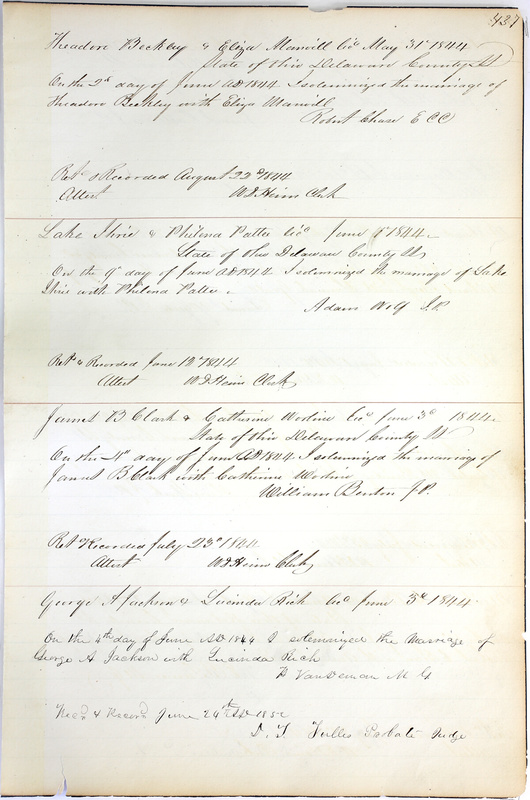 437
Theadore Beckley & Eliza Manvill Licd May 31st 1844
State of Ohio Delaware County SS
On the 2d day of June AD 1844 I solemnized the marriage of
Theadore Beckley with Eliza Manvill
Robert Chase E C C
Retd & Recorded August 22d 1844
Attest W D Heim Clerk
Lake Shrie & Philena Pattee Licd June 8th 1844
State of Ohio Delaware County SS
On the 9th day of June AD 1844 I solemnized the marriage of Lake
Shrie with Philena Pattee
Adam Wolf J.P.
Retd & Recorded June 12th 1844
Attest W D Heim Clerk
James B Clark & Catherine Worline Licd June 3d 1844
State of Ohio Delaware County SS
On the 4th day of June AD 1844 I solemnized the marriage of
James B Clark with Catherine Worline
William Benton J.P.
Retd & Recorded July 23d 1844
Attest W D Heim Clerk
George A Jackson & Lucinda Rich Licd June 3d 1844
On the 4th day of June AD 1844 I solemnized the Marriage of
George A Jackson with Lucinda Rich
H VanDeman M G
Recd & Record June 24th AD 1852
D. T. Fuller Probate Judge